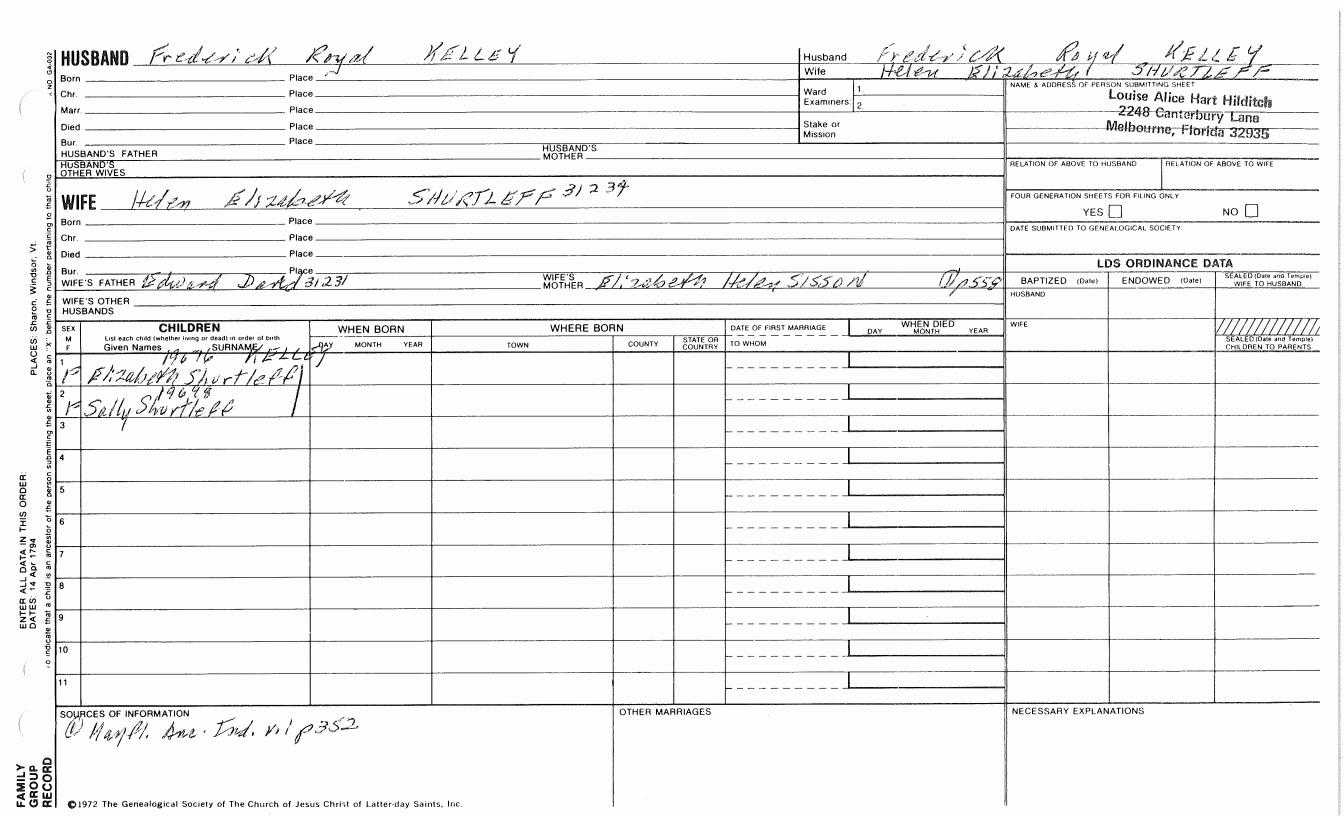 HUSBAND Frederick Royal KELLEY
Born Place
Chr. Place
Marr. Place
Died Place
Bur. Place
HUSBAND'S FATHER HUSBAND'S MOTHER
HUSBAND'S OTHER WIVES
WIFE Helen Elizabeth SHURTLEFF 31234
Born Place
Chr. Place
Died Place
Bur. Place
WIFE'S FATHER Edward David 31231 WIFE'S MOTHER Elizabeth Helen SISSON ① p559
WIFE'S OTHER HUSBANDS
Husband Frederick Royal KELLEY
Wife Helen Elizabeth SHURTLEFF
Ward Examiners 1 2
Stake or Mission
NAME & ADDRESS OF PERSON SUBMITTING SHEET
Louise Alice Hart Hilditch
2248 Canterbury Lane
Melbourne, Florida 32935
RELATION OF ABOVE TO HUSBAND RELATION OF ABOVE TO WIFE
FOUR GENERATION SHEETS FOR FILING ONLY
YES NO
DATE SUBMITTED TO GENEALOGICAL SOCIETY
LDS ORDINANCE DATA
BAPTIZED (Date) ENDOWED (Date) SEALED (Date and Temple) WIFE TO HUSBAND
HUSBAND
WIFE
SEALED (Date and Temple) CHILDREN TO PARENTS
SEX M F
CHILDREN
List each child (whether living or dead) in order of birth
Given Names SURNAME
WHEN BORN
DAY MONTH YEAR
WHERE BORN
TOWN COUNTY STATE OR COUNTRY
DATE OF FIRST MARRIAGE
TO WHOM
WHEN DIED
DAY MONTH YEAR
1 19696 KELLEY
F Elizabeth Shurtleff
2 19698
F Sally Shurtleff
3
4
5
6
7
8
9
10
11
SOURCES OF INFORMATION
① Mayfl. Anc. Ind. v.1 p352
OTHER MARRIAGES
NECESSARY EXPLANATIONS
©1972 The Genealogical Society of The Church of Jesus Christ of Latter-day Saints, Inc.
FAMILY
GROUP
RECORD
ENTER ALL DATA IN THIS ORDER:
DATES: 14 Apr 1794
PLACES: Sharon, Windsor, Vt.
o indicate that a child is an ancestor of the person submitting the sheet, place an "X" behind the number pertaining to that child
NO GA-032